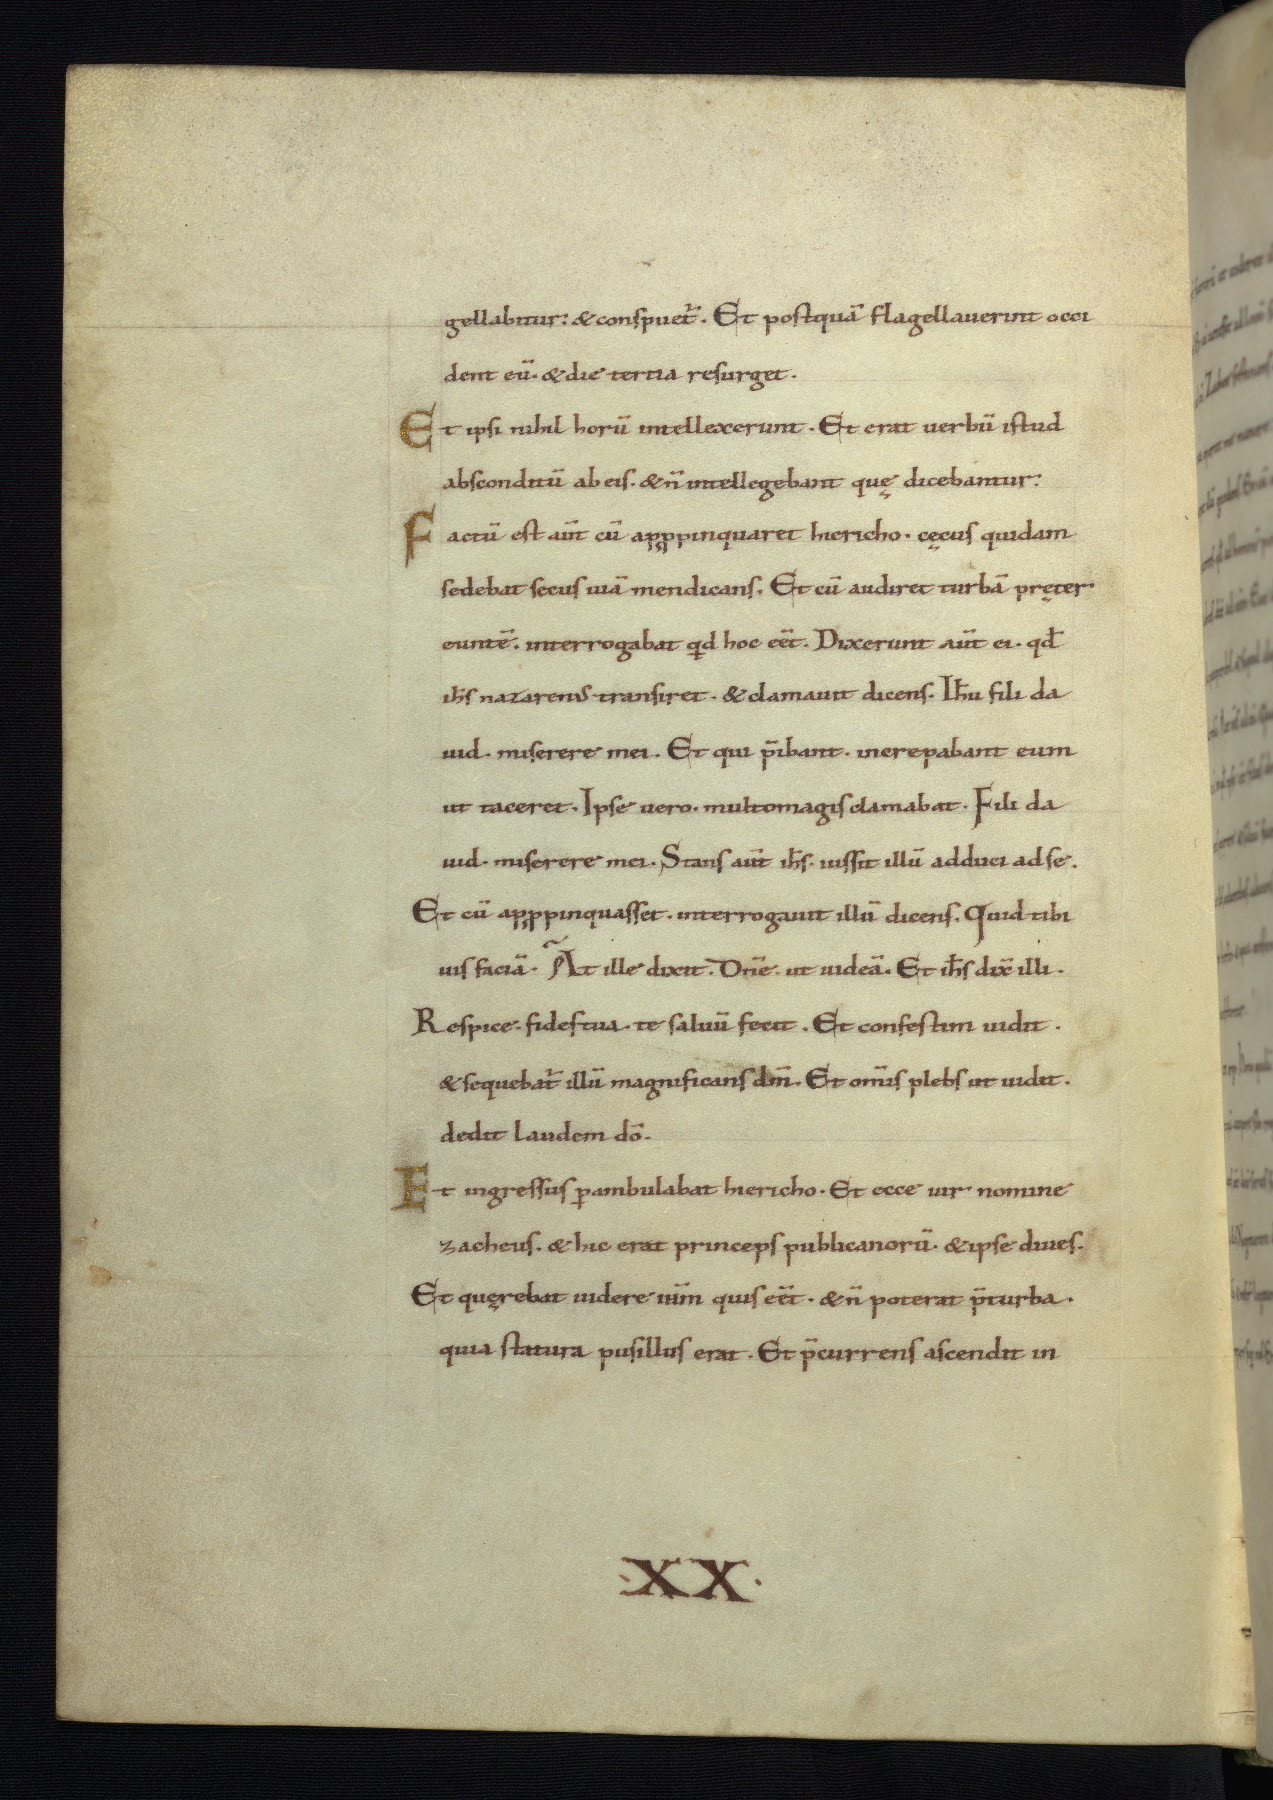 gellabitur: & conspuet̄. Et postquā flagellauerint occi
dent eū. & die tertia resurget.
Et ipsi nihil horū intellexerunt. Et erat uerbū istud
absconditū ab eis. & n̄ intellegebant quę dicebantur:
Factū est aūt cū appropinquaret hiericho. cęcus quidam
sedebat secus uiā mendicans. Et cū audiret turbā pręter
euntē. interrogabat qd hoc eēt. Dixerunt aūt ei. qđ
ih̄s nazarenus transiret. & clamauit dicens. Ih̄u fili da
uid. miserere mei. Et qui p̄ibant. increpabant eum
ut taceret. Ipse uero. multo magis clamabat. Fili da
uid. miserere mei. Stans aūt ih̄s. iussit illū adduci ad se.
Et cū appropinquasset. interrogauit illū dicens. Quid tibi
uis faciā. At ille dixit. Dn̄e. ut uideā. Et ih̄s dix̄ illi.
Respice. fides tua. te saluū fecit. Et confestim uidit.
& sequebat̄ illū magnificans dm̄. Et om̄is plebs ut uidit.
dedit laudem dō.
Et ingressus ꝑambulabat hiericho. Et ecce uir nomine
zacheus. & hic erat princeps publicanorū. & ipse diues.
Et quęrebat uidere ih̄m quis eēt. & n̄ poterat p̄ turba.
quia statura pusillus erat. Et p̄currens ascendit in
·XX·